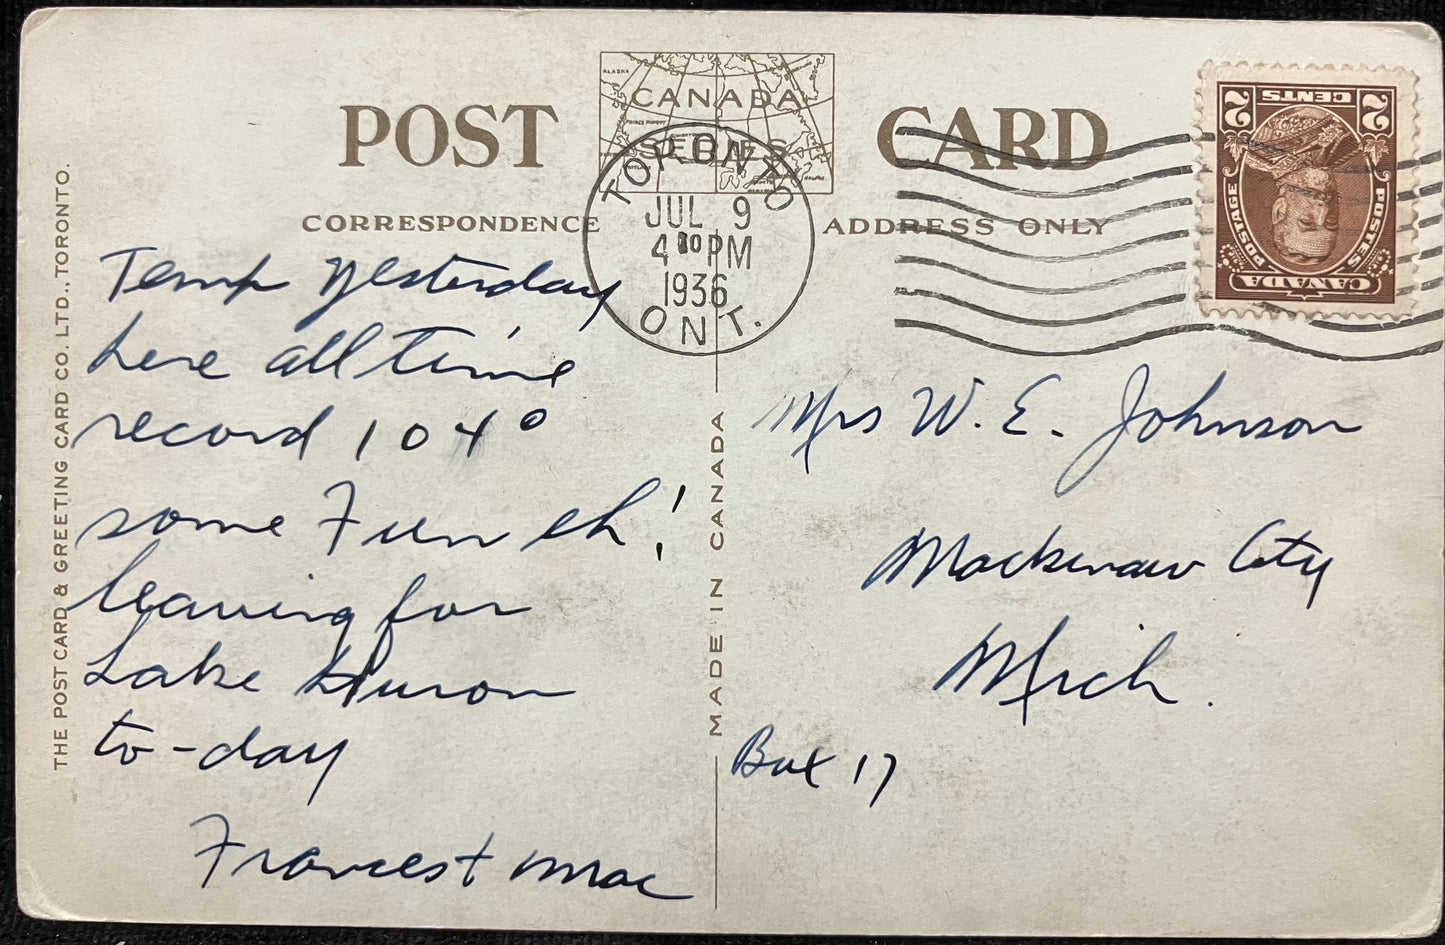 POST CARD
CANADA
SERIES
ALASKA
CORRESPONDENCE
ADDRESS ONLY
TORONTO
JUL 9
4 30 PM
1936
ONT.
2 CENTS 2
POSTAGE
POSTES
CANADA
THE POST CARD & GREETING CARD CO. LTD., TORONTO.
Temp yesterday
here all time
record 104°
some Fun eh!
leaving for
Lake Huron
to-day
Frances + Mac
MADE IN CANADA
Mrs W. E. Johnson
Mackinaw City
Mich.
Box 17